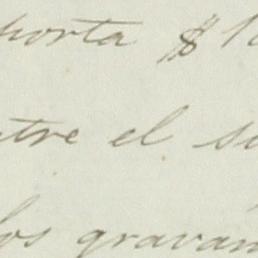 porta $ 1
ntre el su
los graván